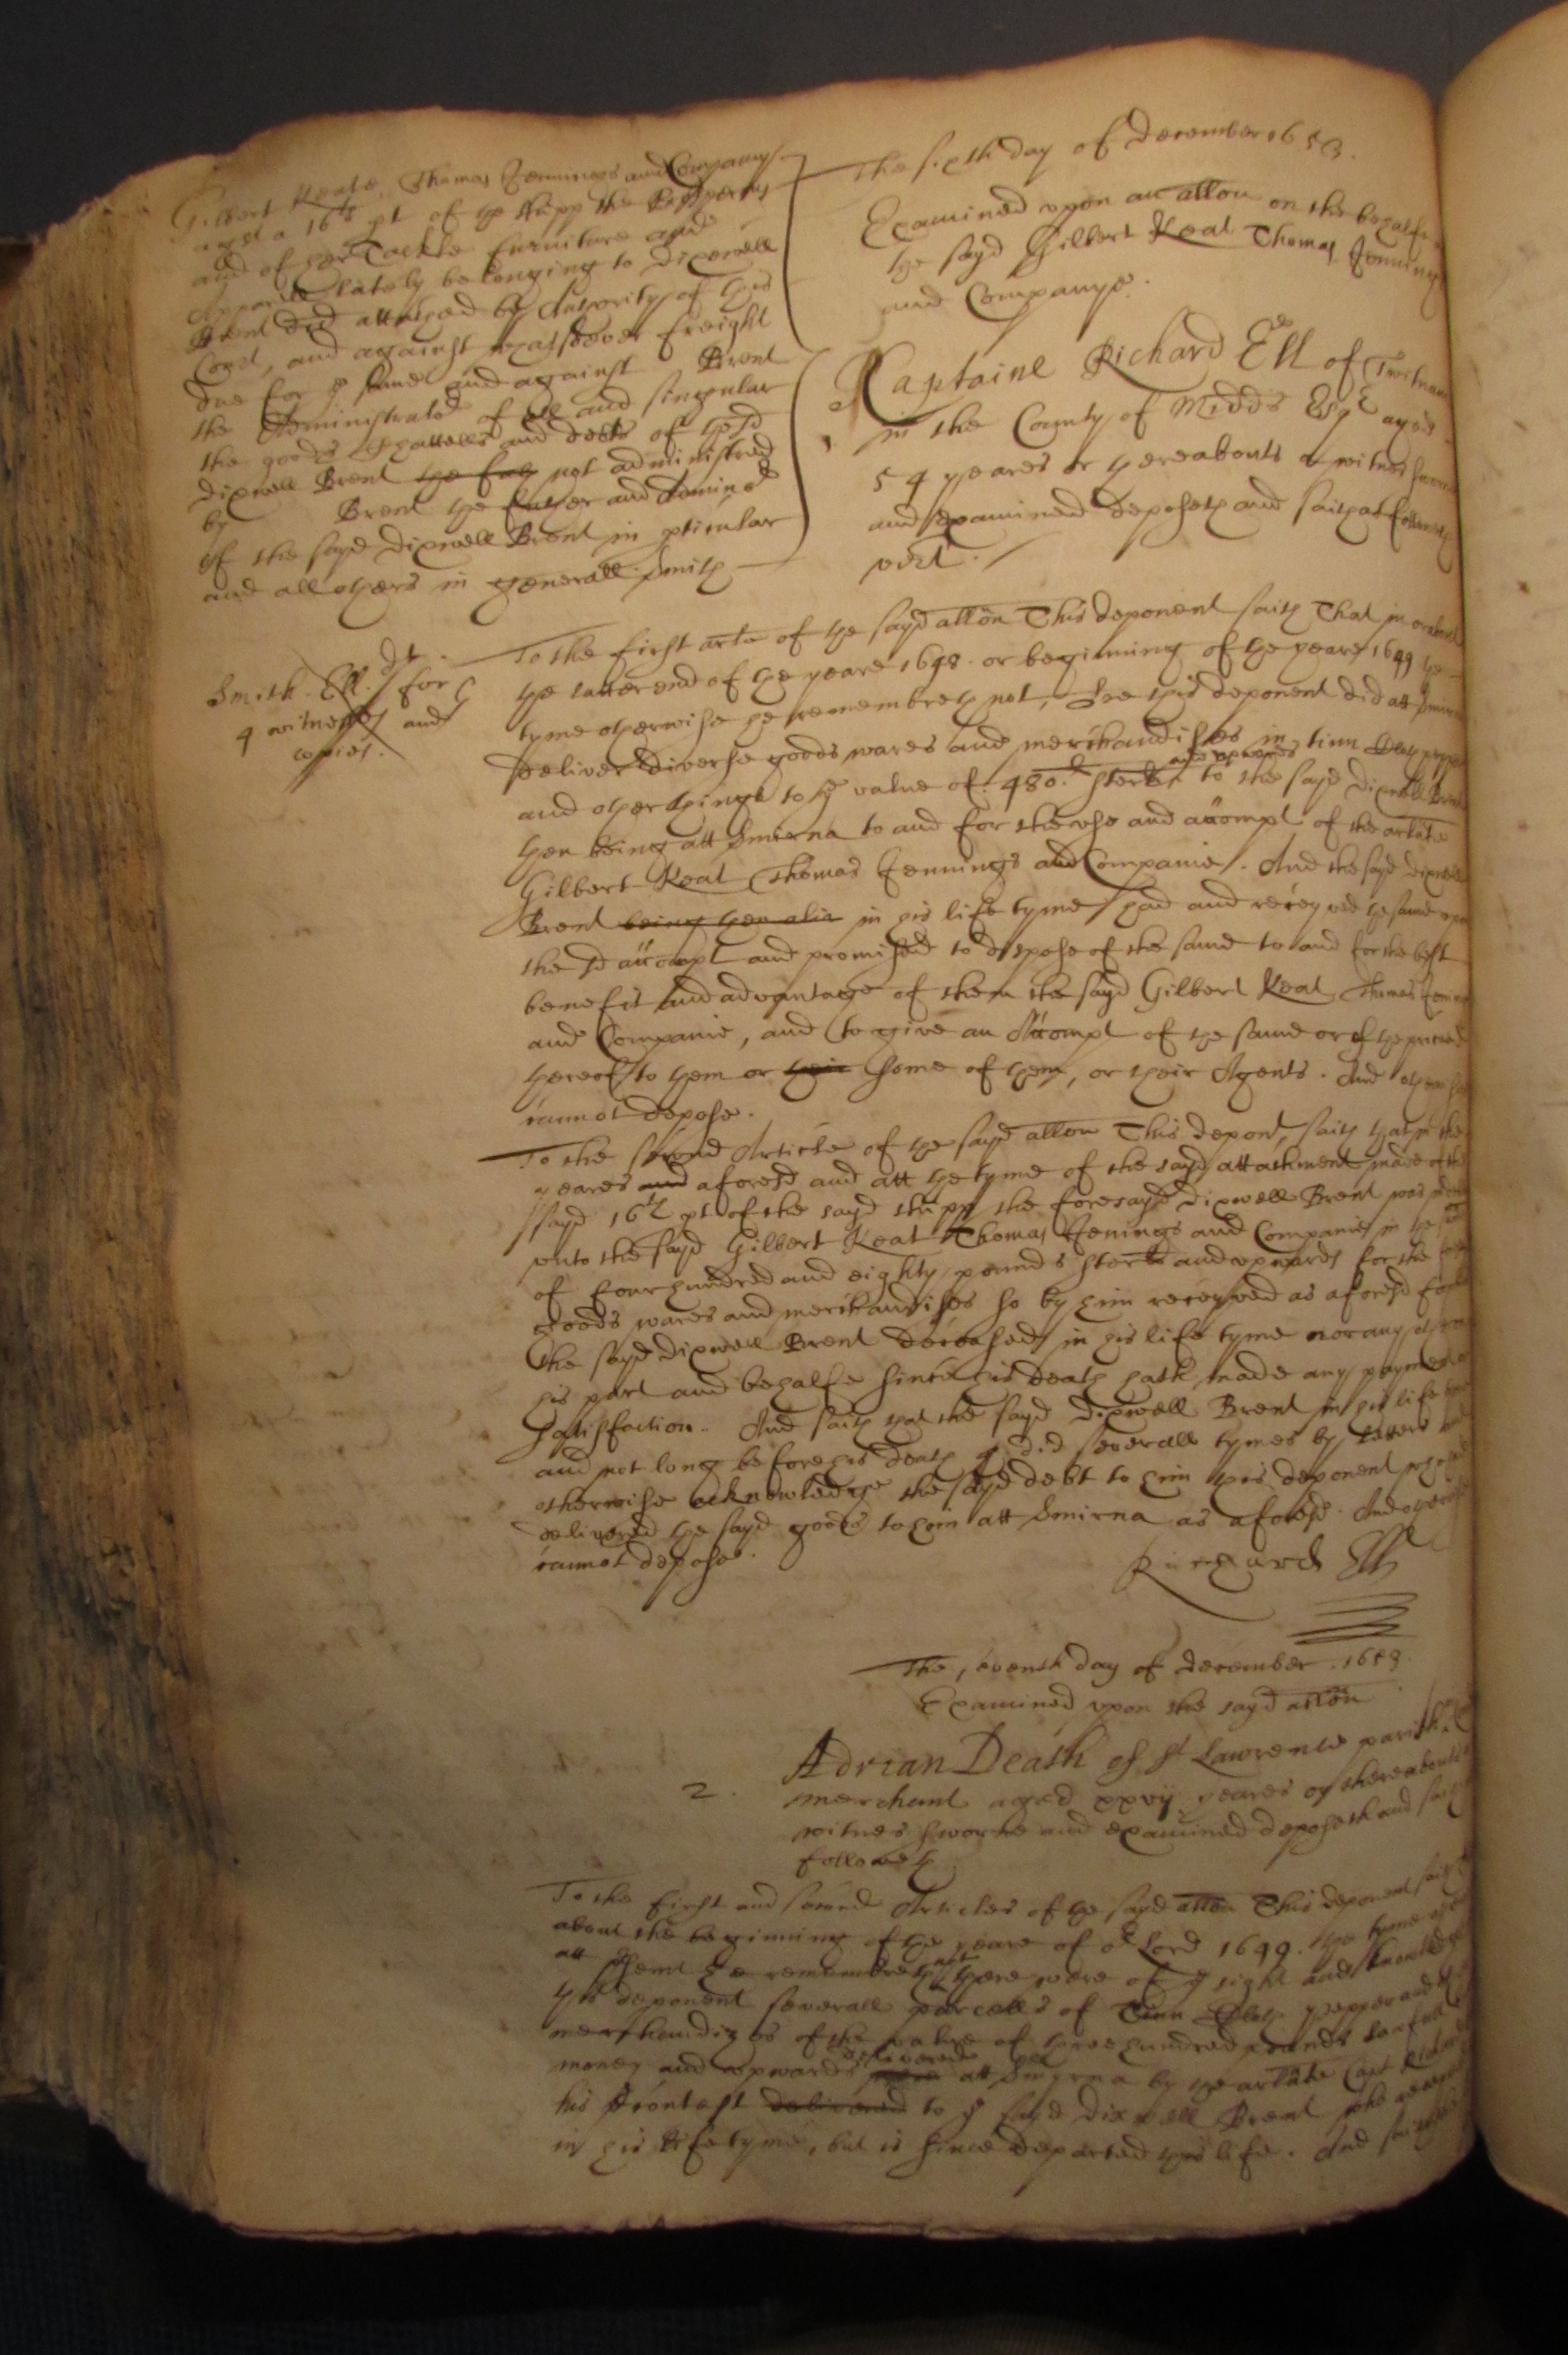 The sixth day of December 1653.
Gilbert Keate, Thomas Jennings and Company
agst a 16th pt of the shipp the Prosperity
and of her Tackle furniture and
Apparrell lately belonging to Dixwell
Brent decd attached by Authority of this
Court, and against whatsoever freight
due for ye same and against Brent
the Administrator of all and singular
the goods chattells and debts of the sd
Dixwell Brent the fath not administred
by Brent the father and Administrator
of the sayd Dixwell Brent in pticular
and all others in generall. Smith
Examined upon an allon on the behalfe
the sayd Gilbert Keat Thomas Jennings
and Companye.
Captaine Richard Ell of
in the County of Midds Esqr aged
54 yeares or thereabouts a witnes sworne
and examined deposeth and saith as followeth
vizt.
1.
Smith. Ell. dt. for
4 witnesses and
copies.
To the first arle of the sayd allon This deponent saith That in or about
the latter end of the yeare 1648. or beginning of the yeare 1649 the
tyme otherwise he remembreth not, hee this deponent did att Smirna
deliver diverse goods wares and merchandises in tinn pepper
and other things to ye value of 480li. sterl and upwards to the sayd Dixwell Brent
then being att Smirna to and for the use and accompt of the arlate
Gilbert Keat Thomas Jennings and Companie. And the sayd Dixwell
Brent being then alive in his life tyme had and receyved the same upon
the sd accompt and promised to dispose of the same to and for the best
benefit and advantage of them the sayd Gilbert Keat Thomas Jennings
and Companie, and to give an Accompt of the same or of the proceed
thereof to them or their some of them, or their Agents. And otherwise
cannot depose.
To the second Article of the sayd allon This depont saith that in the
yeares and aforesd and att the tyme of the sayd attachment made of the
sayd 16th pt of the sayd shipp the foresayd Dixwell Brent was indebted
unto the sayd Gilbert Keat Thomas Jenings and Companie in the summe
of four hundred and eighty pounds sterl and upwards for the
goods wares and merchandises so by him receyved as aforesd for
the sayd Dixwell Brent deceased in his life tyme nor any other on
his part and behalfe since his death hath made any payment or
satisfaction. And saith that the sayd Dixwell Brent in his life tyme
and not long before his death did severall tymes by letters and
otherwise acknowledge the sayd debt to him this deponent who
delivered the sayd goods to him att Smirna as aforesd. And otherwise
cannot depose.
Richard Ell
The seventh day of December. 1653.
Examined upon the sayd allon
2. Adrian Death of St Lawrence parish
merchant aged xxvij yeares or thereabouts
witnes sworne and examined deposeth and saith
followeth
To the first and second Articles of the sayd allon This deponent saith
about the beginning of the yeare of or Lord 1649. the tyme
att he remembreth not there were of ye sight and knowledge
this deponent severall parcells of Tinn pepper and
merchandizes of the value of three hundred pounds lawfull
money and upwards delivered att Smyrna by the arlate Capt Richard
his contest delivered to ye sayd Dixwell Brent who receyved
in his life tyme, but is since departed this life. And saith